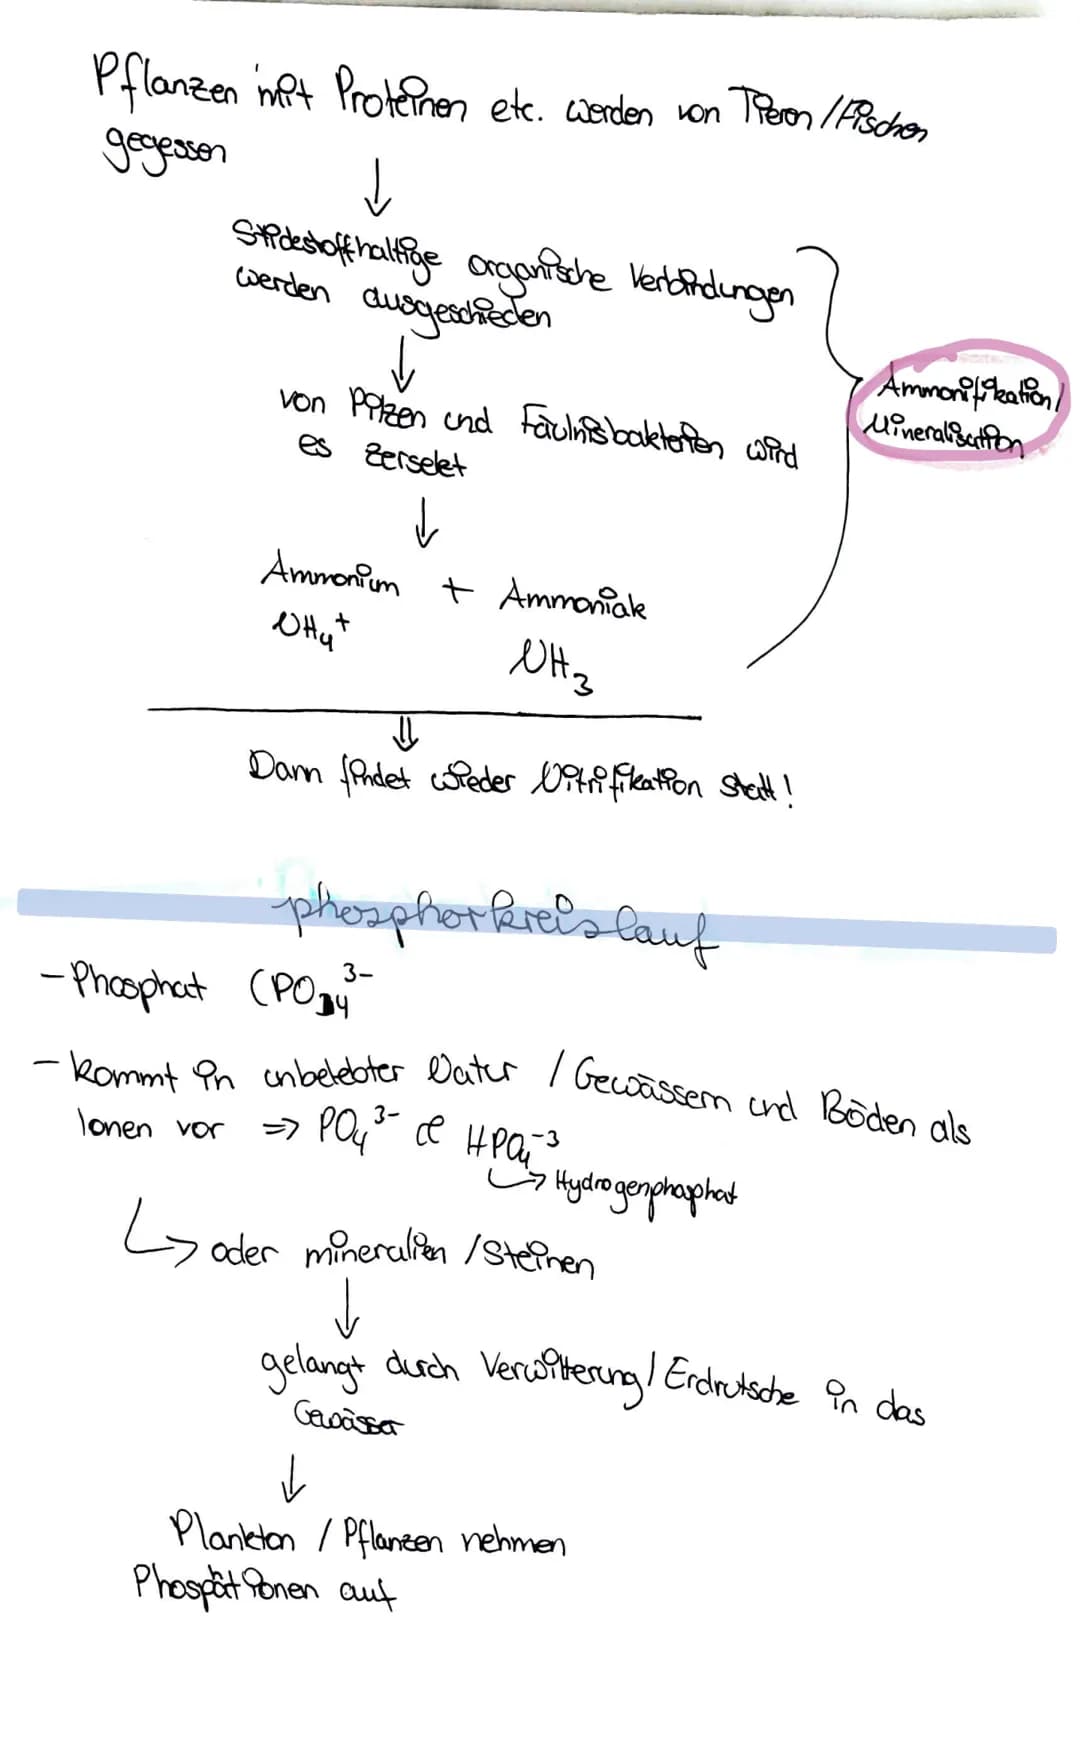 Pflanzen mit Proteinen etc. werden von Tieren / Fischen
gegessen
↓
Stickstoffhaltige organische Verbindungen
werden ausgeschieden
↓
von Pilzen und Fäulnisbakterien wird
es zersetzt
Ammonifikation/
Mineralisation
↓
Ammonium + Ammoniak
NH₄⁺
NH₃
⇓
Dann findet wieder Nitrifikation statt!
phosphorkreislauf
- Phosphat (PO₄³⁻
- kommt in unbelebter Natur / Gewässern und Böden als
Ionen vor => PO₄³⁻ & HPO₄⁻³
↳ Hydrogenphosphat
↳ oder mineralien / Steinen
↓
gelangt durch Verwitterung / Erdrutsche in das
Gewässer
↓
Plankton / Pflanzen nehmen
Phospat Ionen auf